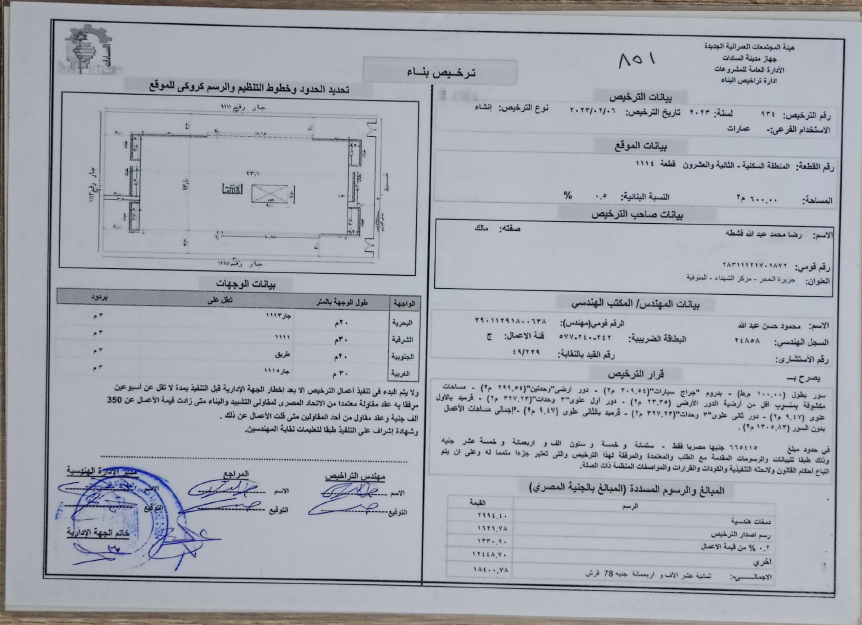 هيئة المجتمعات العمرانية الجديدة
جهاز مدينة السادات
الأدارة العامة للمشروعات
ادارة تراخيص البناء
٨٥١
السادات
ترخيص بناء
بيانات الترخيص
رقم الترخيص: ٩٣٤ لسنة: ٢٠٢٣ تاريخ الترخيص: ٢٠٢٣/٠٢/٠٦ نوع الترخيص: إنشاء
الاستخدام الفرعى:- عمارات
بيانات الموقع
رقم القطعة: المنطقة السكنية - الثانية والعشرون قطعة ١١١٤
المساحة: ٦٠٠,٠٠ م٢ النسبة البنائية: ٠.٥ %
بيانات صاحب الترخيص
الاسم: رضا محمد عبد الله قشطه صفته: مالك
رقم قومي:
العنوان: جزيرة الحجر - مركز الشهداء - المنوفية
بيانات المهندس/ المكتب الهندسي
الاسم: محمود حسن عبد الله الرقم قومي(مهندس): ٢٩٠١١٢٩١٨٠٠٦٣٨
السجل الهندسي: ٢٤٨٥٨ البطاقة الضريبية: ٢٤٢-٢٤٠-٥٧٧ فئة الاعمال: ج
رقم الأستشارى: رقم القيد بالنقابة: ٤٩/٢٢٩
قرار الترخيص
يصرح بـ
سور بطول (١٠٠,٠٠ م.ط) - بدروم "جراج سيارات"(٣٠٩,٥٤ م٢) - دور أرضى"وحدتين"(٢٩٩,٥٤ م٢) - مساحات
مكشوفة بمنسوب اقل من ارضية الدور الأرضى (٢٣,٣٥ م٢) - دور اول علوى"٣ وحدات"(٣٢٧,٢٣ م٢) - قرميد بالأول
علوى (٩,٤٧ م٢) - دور ثانى علوى"٣ وحدات"(٣٢٧,٢٣ م٢) - قرميد بالثانى علوى (٩,٤٧ م٢) - *إجمالى مساحات الأعمال
بدون السور*(١٣٠٥,٨٣ م٢)
في حدود مبلغ ٦٦٥٤١٥ جنيها مصريا فقط - ستمائة و خمسة و ستون الف و اربعمائة و خمسة عشر جنيه
وذلك طبقا للبيانات والرسومات المقدمة مع الطلب والمعتمدة والمرفقة لهذا الترخيص والتى تعتبر جزءا متمما له وعلى ان يتم
اتباع أحكام القانون ولائحته التنفيذية والكودات والقرارات والمواصفات المنظمة ذات الصلة.
المبالغ والرسوم المسددة (المبالغ بالجنية المصري)
الرسم القيمة
دمغات هندسية ٢٩٩٤,٤٠
رسم اصدار الترخيص ١٦٢٦,٧٨
٠.٢ % من قيمة الاعمال ١٣٣٠,٩٠
أخري ١٢٤٤٨,٧٠
الاجمالـــي:- ثمانية عشر الاف و اربعمائة جنيه 78 قرش ١٨٤٠٠,٧٨
تحديد الحدود وخطوط التنظيم والرسم كروكى للموقع
جار رقم ١١١٣
جار رقم ١١١٥
بيانات الوجهات
الواجهة طول الوجهة بالمتر تطل على بردود
البحرية ٢٠م جار١١١٣ ٣ م
الشرقية ٣٠م ١١١١ ٣ م
الجنوبية ٢٠م طريق ٣ م
الغربية ٣٠ م جار١١١٥ ٣ م
ولا يتم البدء فى تنفيذ أعمال الترخيص الا بعد اخطار الجهة الإدارية قبل التنفيذ بمدة لا تقل عن أسبوعين
مرفقا به عقد مقاولة معتمدا من الاتحاد المصرى لمقاولى التشييد والبناء متى زادت قيمة الأعمال عن 350
ألف جنية وعقد مقاول من أحد المقاولين متى قلت الأعمال عن ذلك .
وشهادة إشراف على التنفيذ طبقا لتعليمات نقابة المهندسين.
مهندس التراخيص المراجع مدير الإدارة الهندسية
الاسم الاسم الاسم
التوقيع التوقيع التوقيع
خاتم الجهة الإدارية